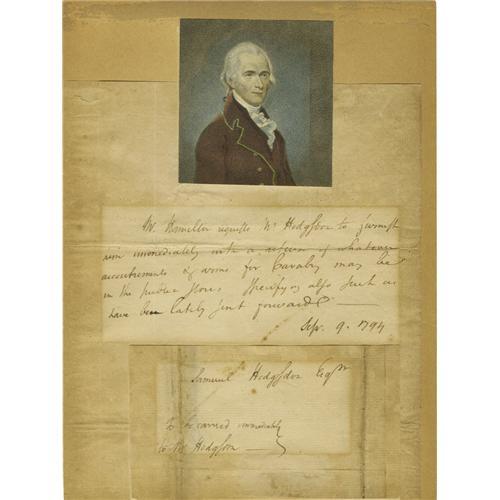 Mr Hamilton requests Mr Hodgsdon to furnish
him immediately with a return of whatever
accoutrements & arms for Cavalry may be
in the public stores specifying also such as
have been lately sent forward —
Sep. 9. 1794
Samuel Hodgsdon Esqr
to be carried immediately
to Mr Hodgsdon —